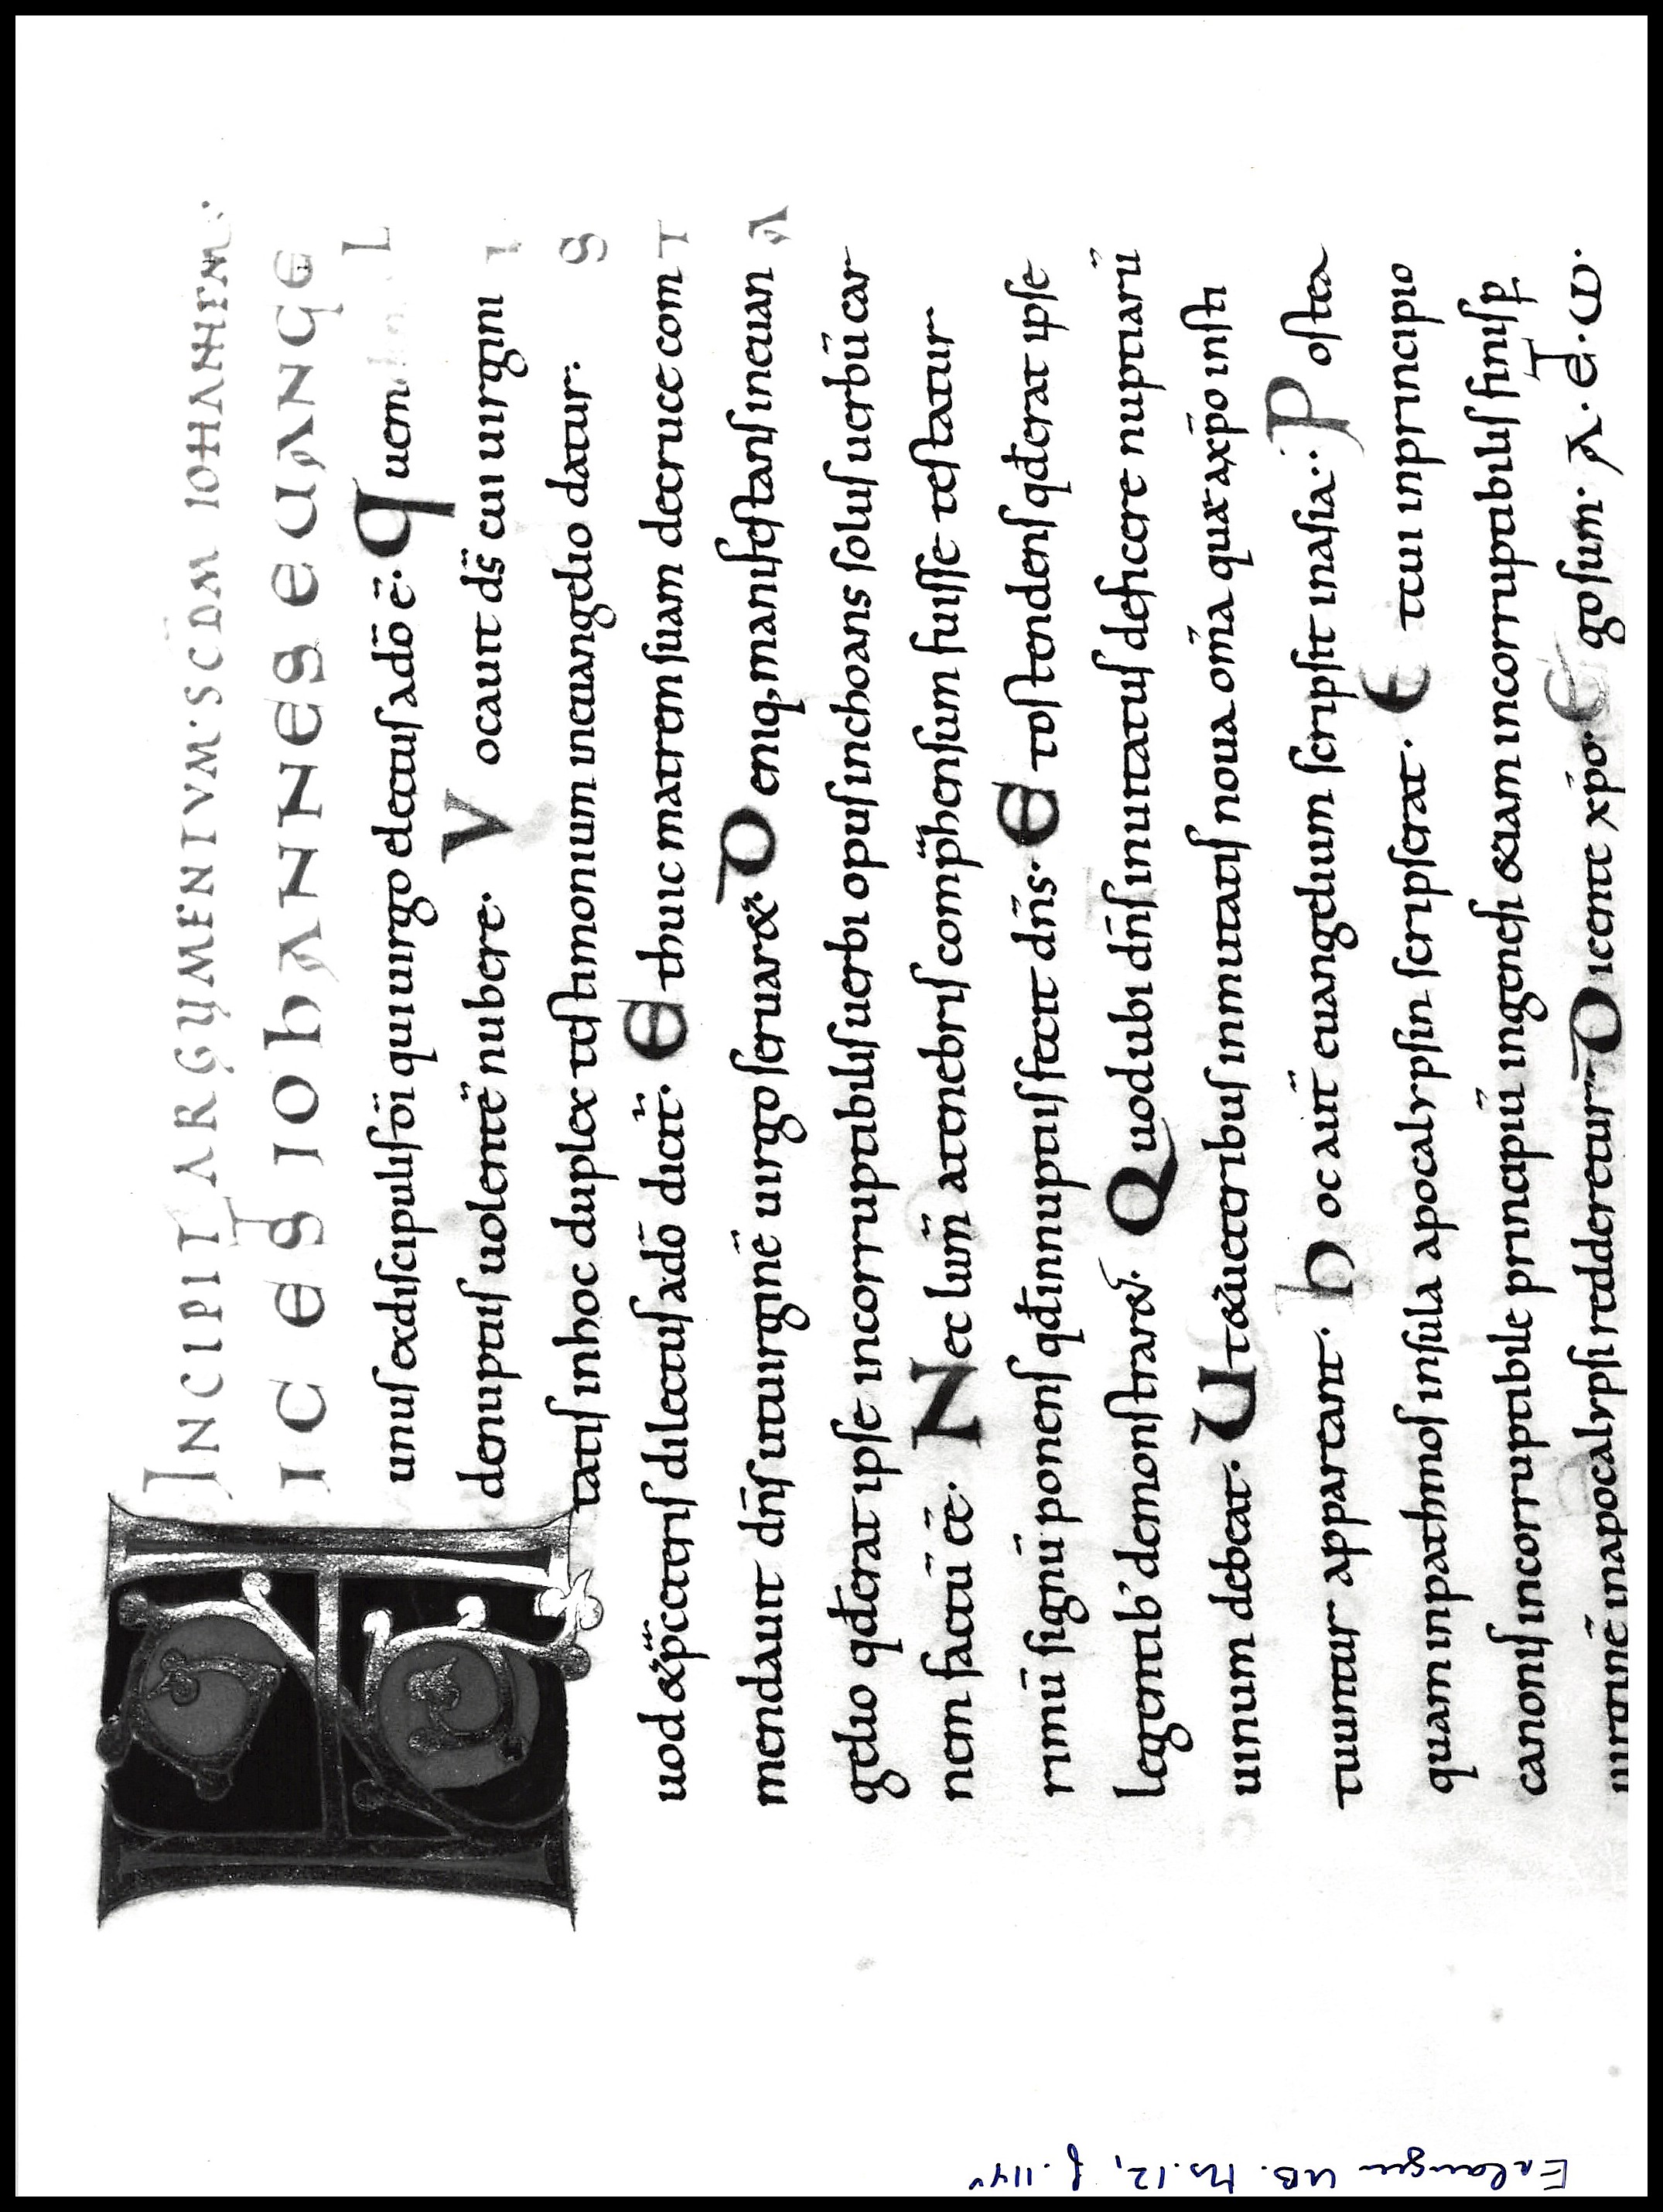 INCIPIT ARGUMENTUM · SCDM IOHANNEM :
HIC EST IOHANNES EUANGE
L
unus ex discipulis dī qui uirgo electus a dō ē. Quem
denuptiis uolentē nubere. Vocauit ds̄ cui uirgini
I
tatis in hoc duplex testimonium in euangelio datur.
S
uod & p̄ ceteris dilectus a dō dicit̄. Et huic matrem suam de cruce com
T
mendauit dn̄s ut uirginē uirgo seruar&. Deniq, manifestans in euan
A
gelio qđ erat ipse incorruptibilis uerbi opus inchoans solus uerbū car
nem factū eē. Nec lum̄ a tenebris comp̄hensum fuisse testatur
rimū signū ponens qđ in nuptiis fecit dn̄s. Et ostendens qđ erat ipse
legentib' demonstrar&. Quod ubi dn̄s inuitatus deficere nuptiarū
uinum debeat. Ut & ueteribus inmutatis noua om̄a quae a xp̄o insti
tuuntur appareant. Hoc aut̄ euangelium scripsit in asia. Postea
quam in pathmos insula apocalypsin scripserat. Et cui in principio
canonis incorruptibile principiū in genesi & iam incorruptibilis finis p
uirginē in apocalypsi redderetur. Dicente xp̄o. Ego sum. A. et. ω.
Erlangen UB. Ms. 12, f. 114v